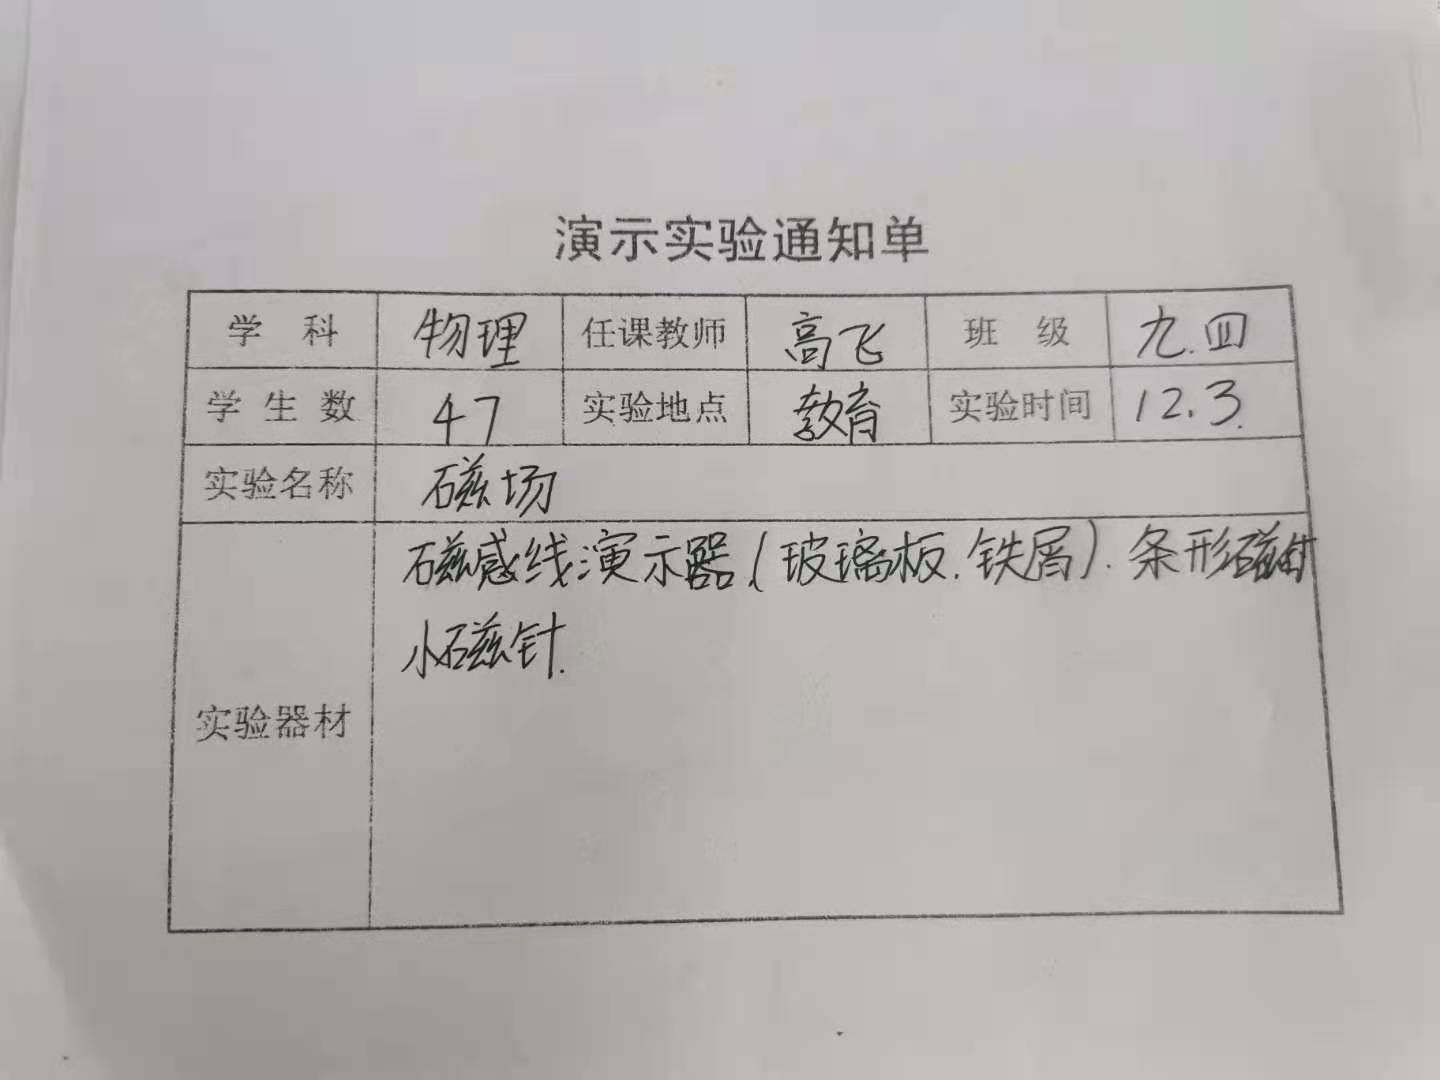 演示实验通知单
学 科 物理 任课教师 高飞 班 级 九.四
学 生 数 47 实验地点 教育 实验时间 12.3.
实验名称 磁场
磁感线演示器.(玻璃板.铁屑).条形磁
小磁针.
实验器材